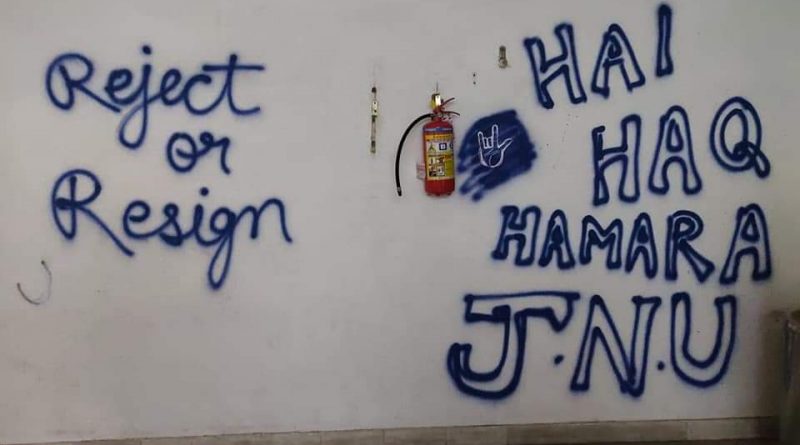 Reject
or
Resign
HAI
HAQ
HAMARA
J.N.U